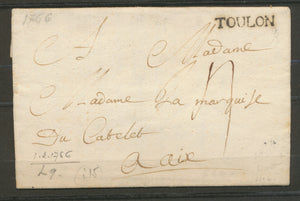 1766
TOULON
A Madame
Madame La marquise
Du Castelet
a aix
4
1.2.1766
L9. 215